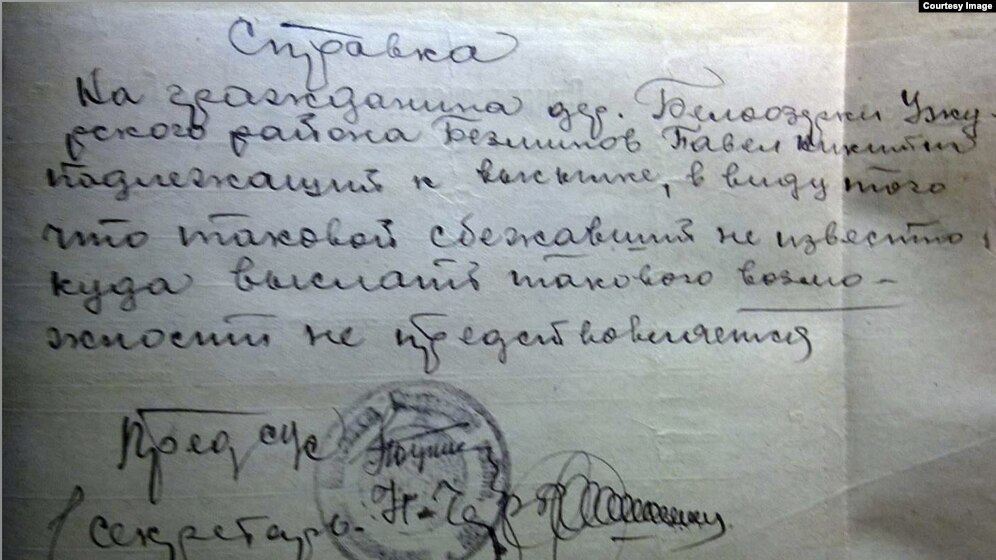 Courtesy Image
Справка
На гражданина дер. Белоозерки Ужу-
рского района Безлипов Павел Никитин
подлежащий к высылке, в виду того
что таковой сбежавший не известно
куда выслать такового возмо-
жности не предствовляется
Пред с/с
Секретарь